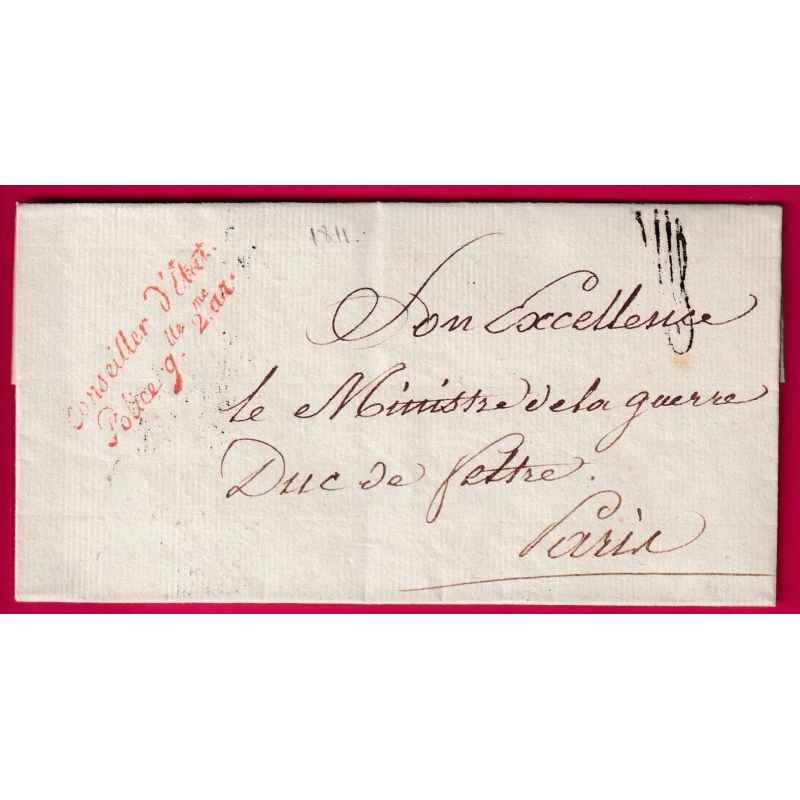 1811.
Conseiller d'Etat.
Police g.lle 2.me ar.
Son Excellence
le Ministre de la guerre
Duc de feltre.
Paris